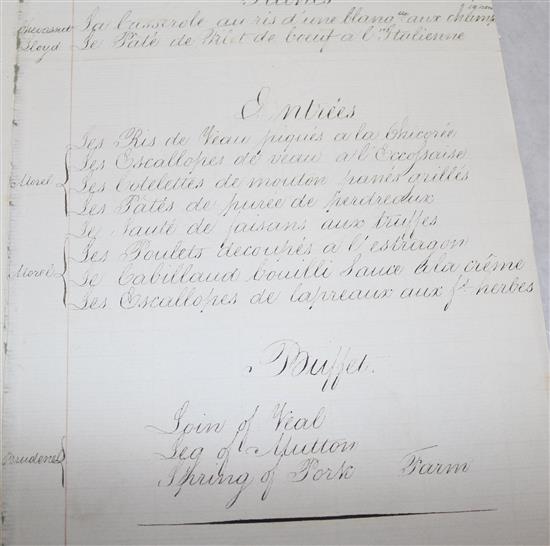 Chevassut La Casserole au ris d'une blanq.te aux champ
Lloyd Le Pâté de Filet de boeuf a l'Italienne
Entrées
Les Ris de Veau piqués a la Chicorée
Les Escallopes de veau a l'Eccossaise
Morel Les Cotelettes de mouton panés grillés
Les Patés de purée de perdreaux
Le Sauté de faisans aux truffes
Les Poulets decoupés a l'estragon
Morel Le Cabillaud bouilli Sauce a la crême
Les Escallopes de lapreaux aux f.s herbes
Buffet.
Loin of Veal
Leg of Mutton
Spring of Pork Farm